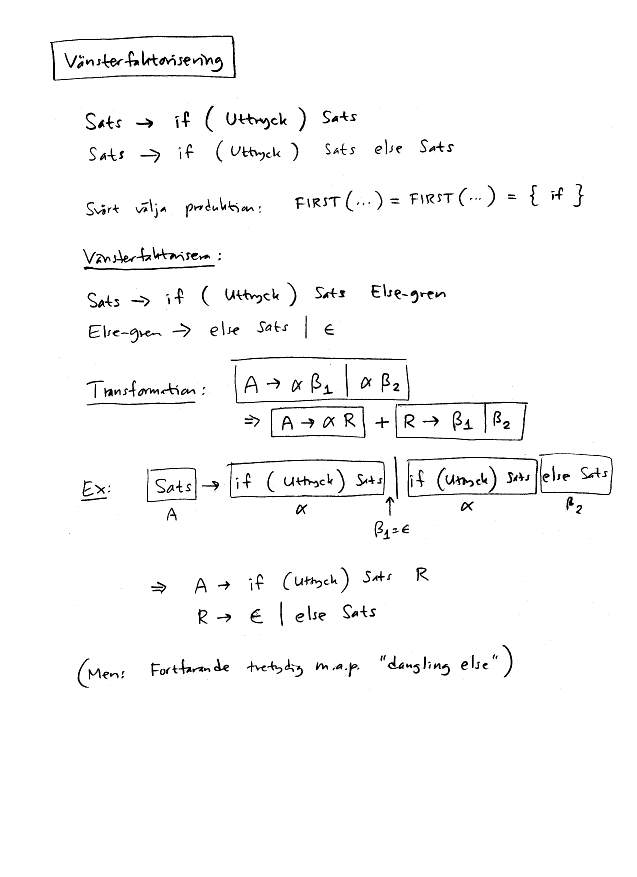 Vänsterfaktorisering
Sats → if ( Uttryck ) Sats
Sats → if ( Uttryck ) Sats else Sats
Svårt välja produktion: FIRST(...) = FIRST(...) = { if }
Vänsterfaktorisera:
Sats → if ( Uttryck ) Sats Else-gren
Else-gren → else Sats | ϵ
Transformation: A → α β1 | α β2
⇒ A → α R + R → β1 | β2
Ex: Sats → if ( Uttryck ) Sats | if (Uttryck) Sats else Sats
A α ↑ α β2
β1 = ϵ
⇒ A → if (Uttryck) Sats R
R → ϵ | else Sats
(Men: Fortfarande tvetydig m.a.p. "dangling else")